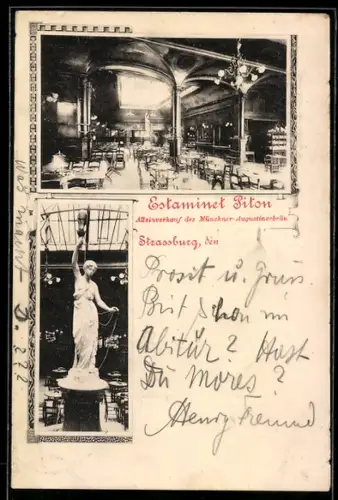 Estaminet Piton
Alleinverkauf des Münchner-Augustinerbräu.
Strassburg, den
Prosit u. Gruss
Bist Schon im
Abitur? Hast
Du Mores?
Henry Freund
Was macht